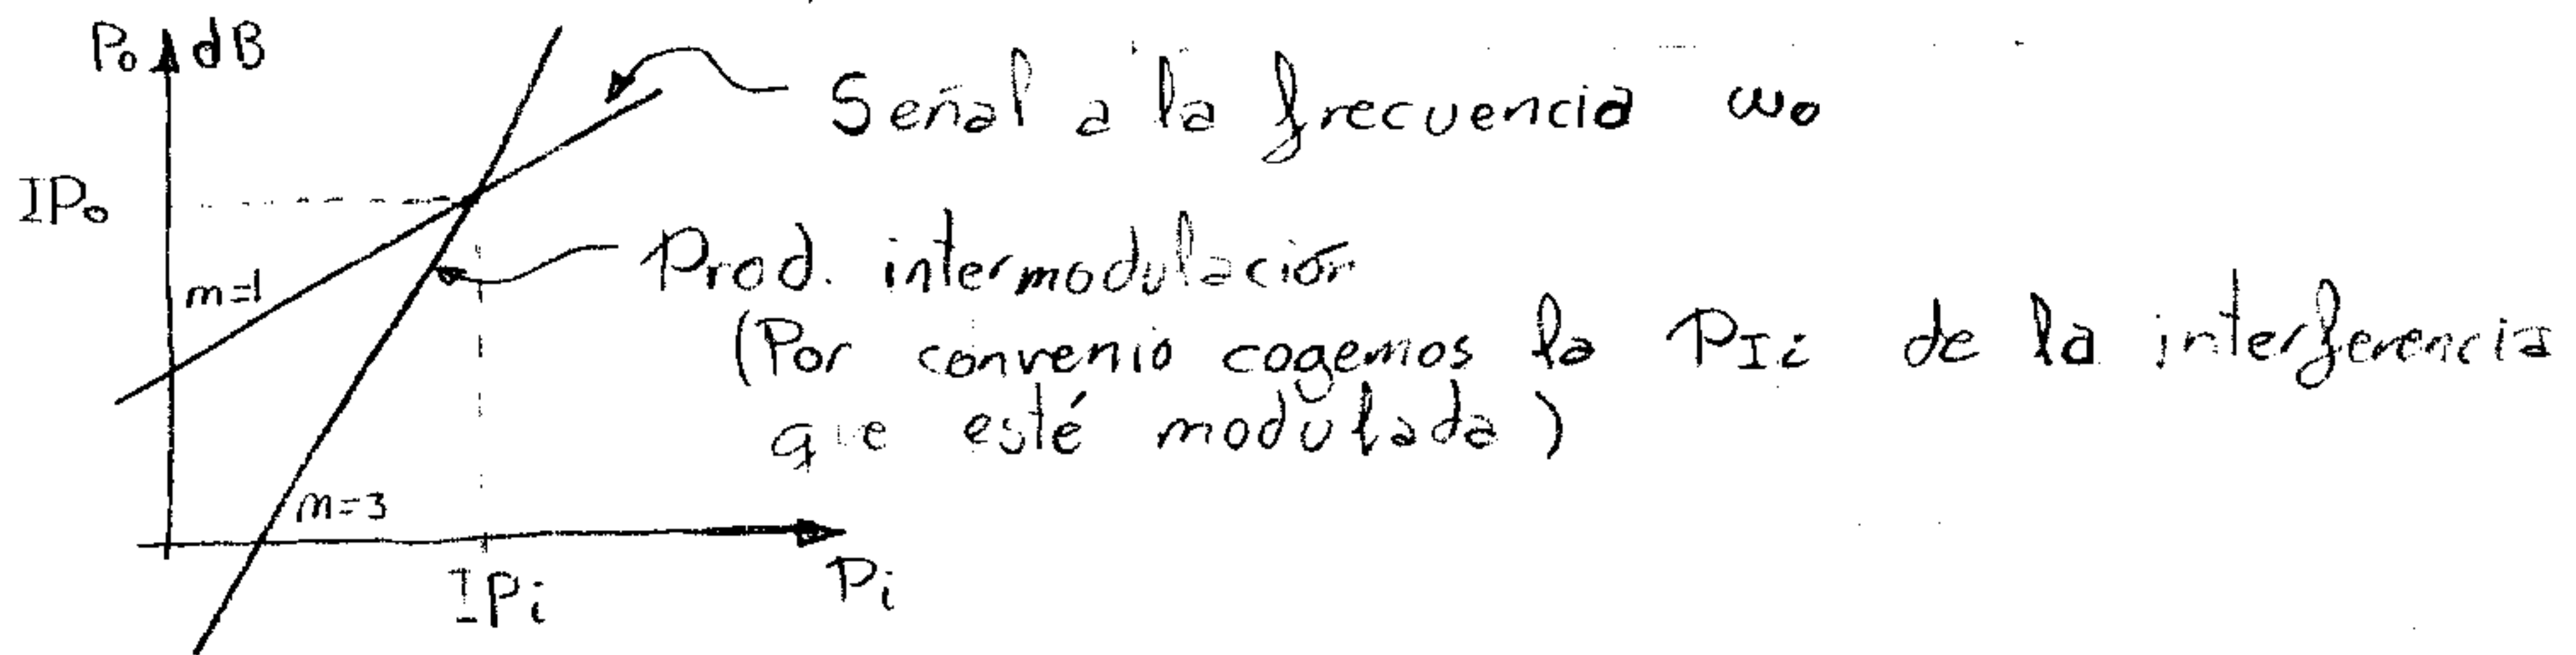 P₀ dB
Señal a la frecuencia ω₀
IP₀
Prod. intermodulación
m=1
(Por convenio cogemos la P_Ii de la interferencia
que esté modulada)
m=3
IPi
Pi